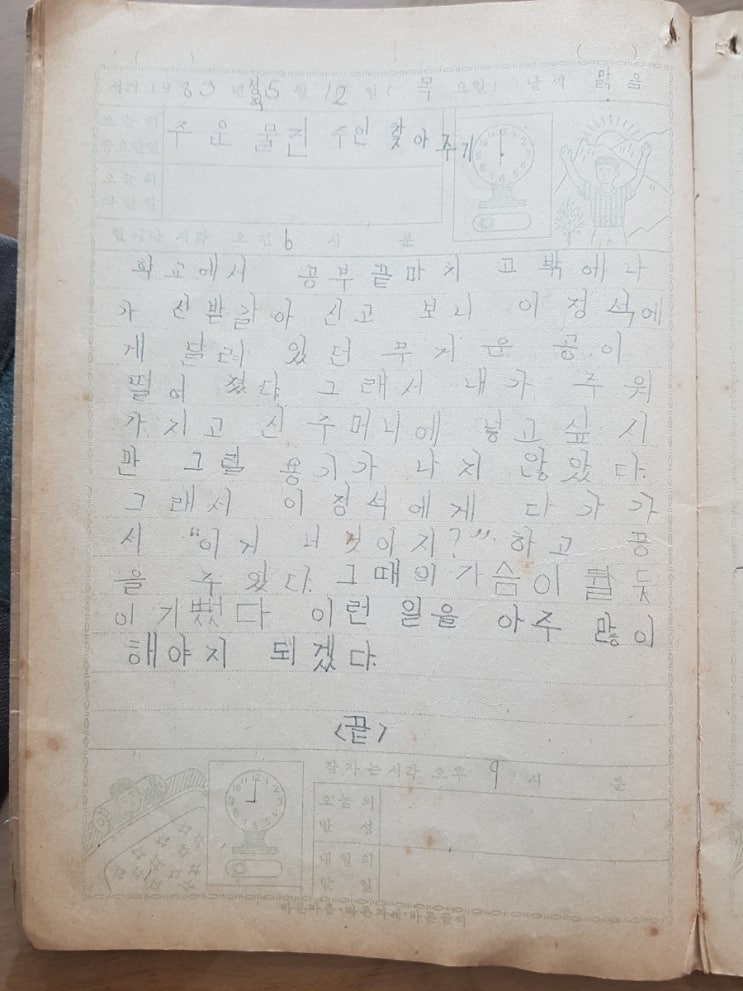 서기 1983년 5월 12일 (목요일) 날씨 맑음
오늘의 중요한일 주운 물건 주인 찾아 주기
오늘의 착한일
일어난 시각 오전 6 시 분
학교에서 공부 끝마치 고 밖에 나
가 신 받갈아 신고 보니 이 정석에
게 달려 있던 무거운 공이
떨어 졌다. 그래서 내가 주워
가지고 신 주머니에 넣고 싶 지
만 그럴 용기가 나지 않았다.
그래서 이 정석에게 다가가
서 "이거 너것이지?" 하고 공
을 주었다. 그때의 가슴이 뛸듯
이 기뻤다 이런 일을 아주 많이
해야지 되겠다.
<끝>
잠자는시각 오후 9 시 분
오늘의 반성
내일의 할일
바른마음·바른자세·바른글씨